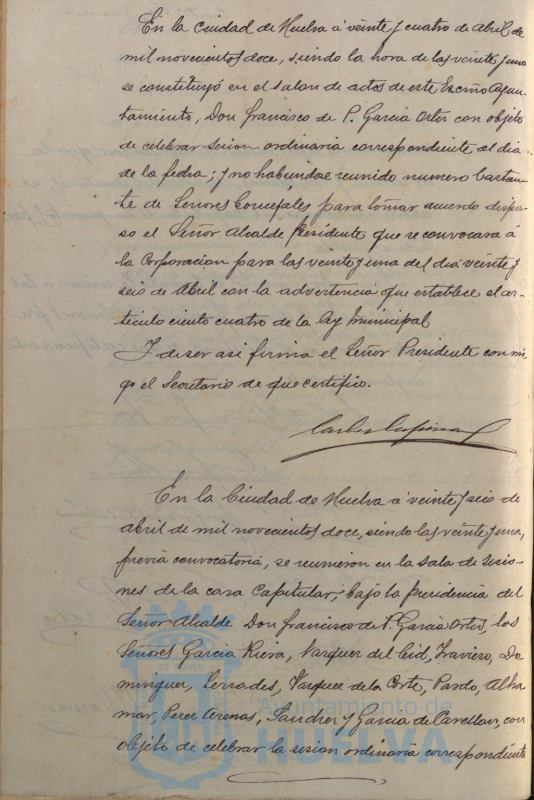 En la Ciudad de Huelva á veinte y cuatro de Abril de
mil novecientos doce, siendo la hora de las veinte y una
se constituyó en el salon de actos de este Excmo Ayun-
tamiento, Don Francisco de P. Garcia Ortiz con objeto
de celebrar sesion ordinaria correspondiente al dia
de la fecha; y no habiendose reunido numero bastan-
te de Señores Concejales para tomar acuerdo dispu-
so el Señor Alcalde Presidente que se convocara á
la Corporacion para las veinte y una del dia veinte y
seis de Abril con la advertencia que establece el ar-
ticulo ciento cuatro de la ley Municipal
Y de ser asi firma el Señor Presidente conmi-
go el Secretario de que certifico.
En la Ciudad de Huelva á veinte y seis de
Abril de mil novecientos doce, siendo las veinte y una,
previa convocatoria, se reunieron en la sala de sesio-
nes de la casa Capitular, bajo la Presidencia del
Señor Alcalde Don Francisco de P. Garcia Ortiz, los
Señores Garcia Riera, Vazquez del Cid, Travieso, Do-
minguez, Serrades, Vazquez de la Corte, Pardo, Alha-
mar, Perez Arenas, Sanchez y Garcia de Cavellan, con
objeto de celebrar la sesion ordinaria correspondiente
Ayuntamiento de
HUELVA